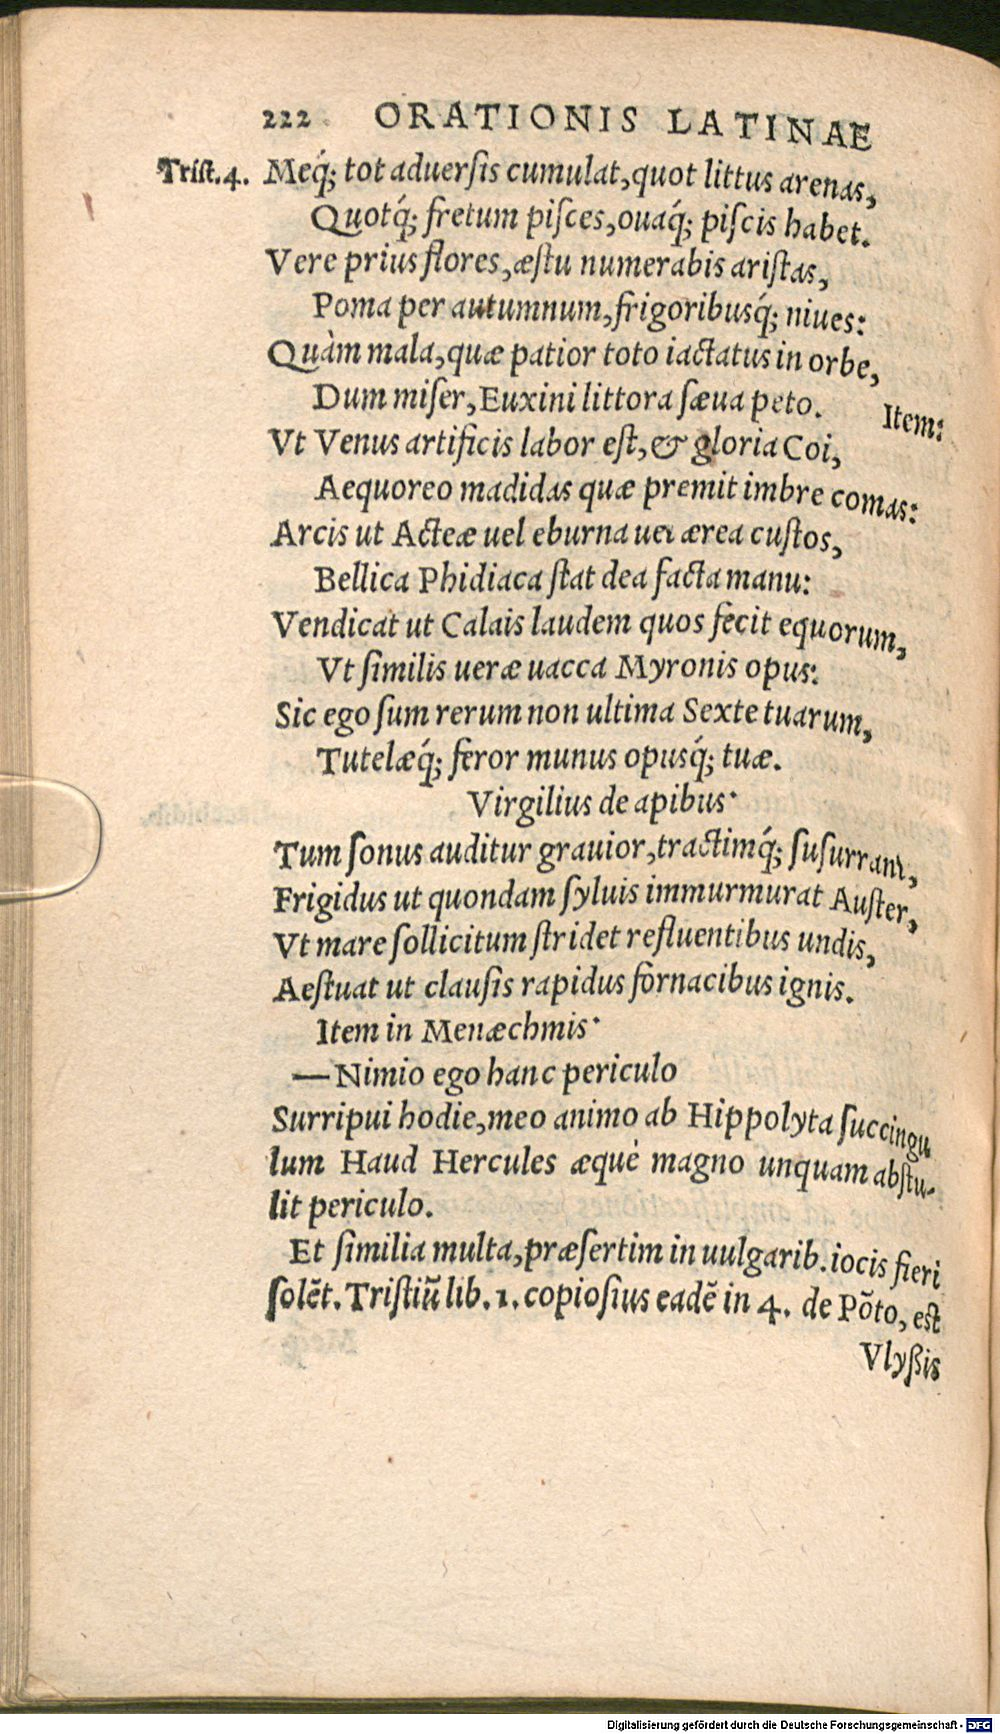 222 ORATIONIS LATINAE
Trist.4. Meq́; tot aduersis cumulat, quot littus arenas,
Quotq́; fretum pisces, ouaq́; piscis habet.
Vere prius flores, æstu numerabis aristas,
Poma per autumnum, frigoribusq́; niues:
Quàm mala, quæ patior toto iactatus in orbe,
Dum miser, Euxini littora sæua peto. Item:
Vt Venus artificis labor est, & gloria Coi,
Aequoreo madidas quæ premit imbre comas:
Arcis ut Acteæ uel eburna uel ærea custos,
Bellica Phidiaca stat dea facta manu:
Vendicat ut Calais laudem quos fecit equorum,
Vt similis ueræ uacca Myronis opus:
Sic ego sum rerum non ultima Sexte tuarum,
Tutelæq́; feror munus opusq́; tuæ.
Virgilius de apibus·
Tum sonus auditur grauior, tractimq́; susurrant,
Frigidus ut quondam syluis immurmurat Auster,
Vt mare sollicitum stridet refluentibus undis,
Aestuat ut clausis rapidus fornacibus ignis.
Item in Menæchmis·
—Nimio ego hanc periculo
Surripui hodie, meo animo ab Hippolyta succingu
lum Haud Hercules æquè magno unquam abstu-
lit periculo.
Et similia multa, præsertim in uulgarib. iocis fieri
solēt. Tristiū lib. 1. copiosius eadē in 4. de Pōto, est
Vlyßis
Digitalisierung gefördert durch die Deutsche Forschungsgemeinschaft - DFG